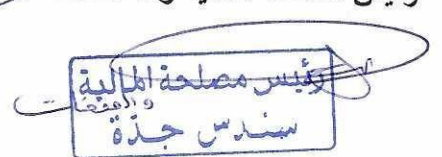 رئيس مصلحة المالية
والصفقات
سندس جدة